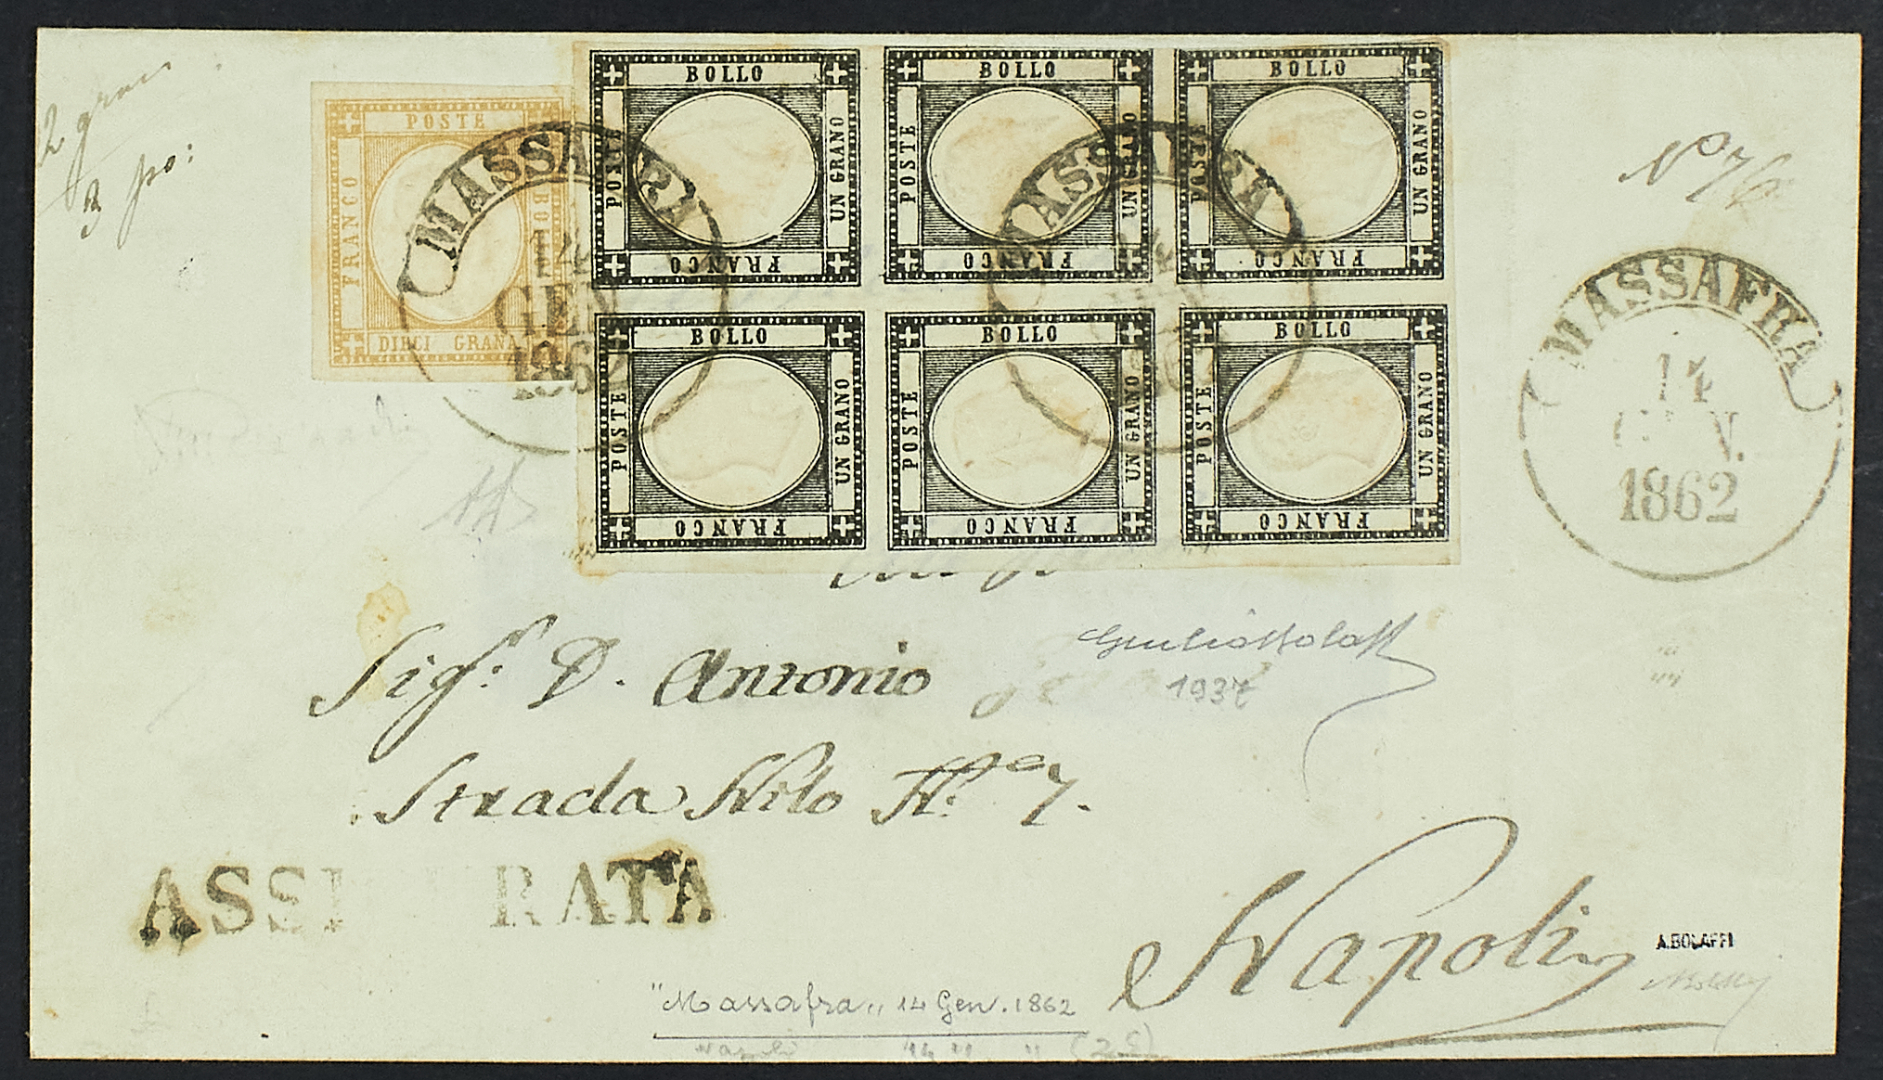 2 grana
3 po:
POSTE
FRANCO
BOLLO
DIECI GRANA
BOLLO
POSTE
UN GRANO
FRANCO
BOLLO
POSTE
UN GRANO
FRANCO
BOLLO
POSTE
UN GRANO
FRANCO
BOLLO
POSTE
UN GRANO
FRANCO
BOLLO
POSTE
UN GRANO
FRANCO
BOLLO
POSTE
UN GRANO
FRANCO
MASSAFRA
14
GEN
1862
MASSAFRA
14
GEN
1862
No 76
MASSAFRA
14
GEN.
1862
Sigr. D. Antonio
Giulio Bolaffi
1937
Strada Nilo No 7.
ASSICURATA
Napoli
A.BOLAFFI
"Massafra" 14 Gen. 1862
Napoli 14 " "